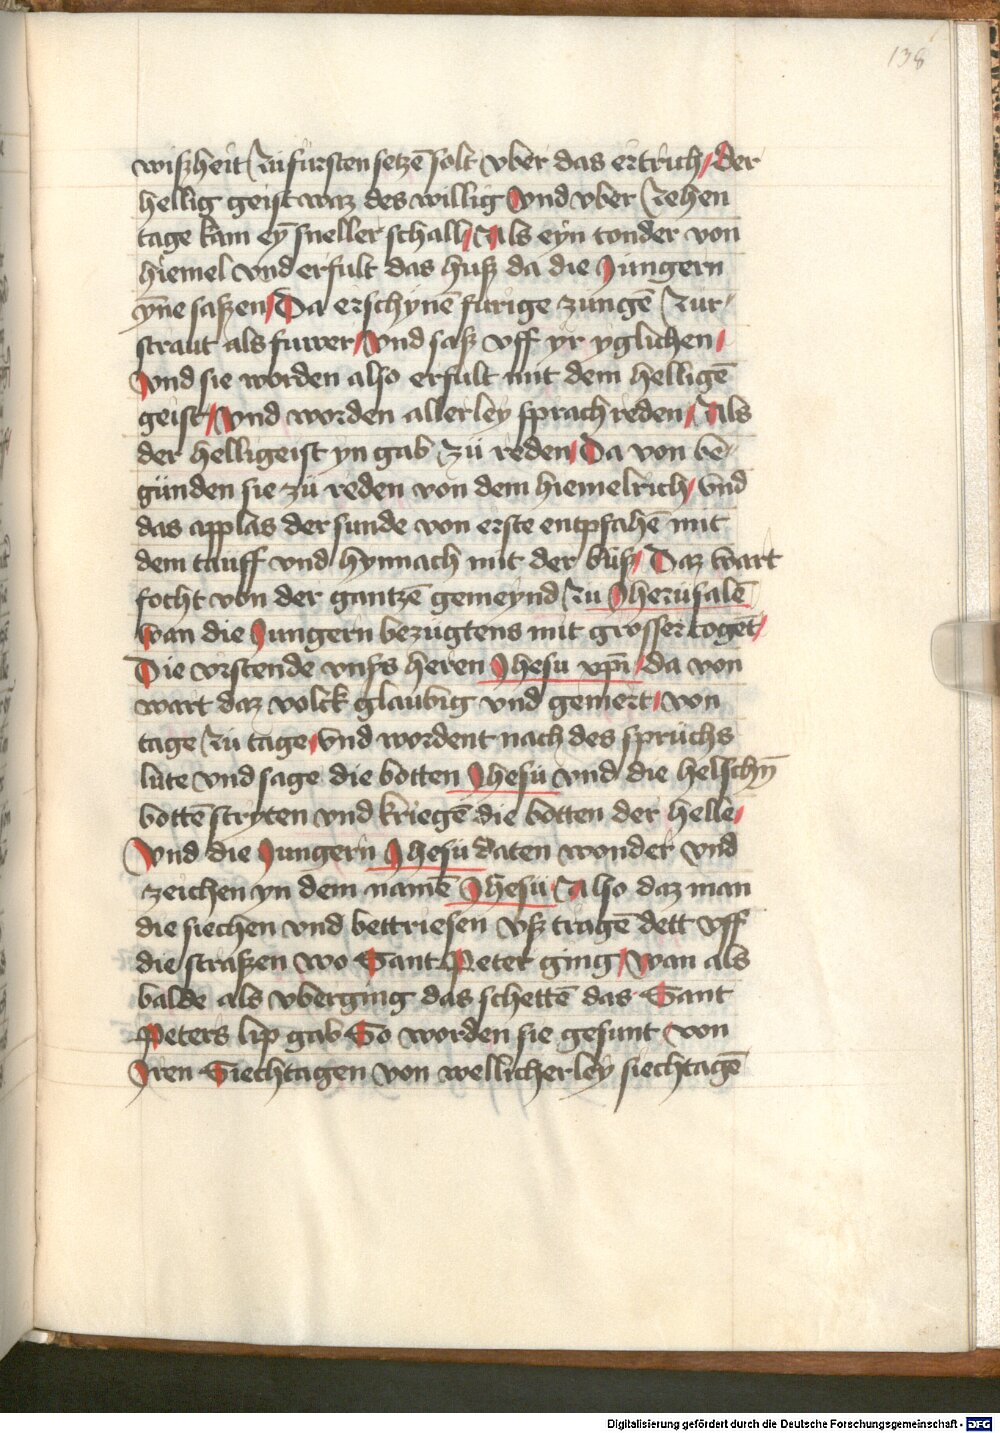 138
wiszheit zu fursten setzē solt vber das ertrich / der
hellig geist waz des willig Vnd vber zehen
tage kam eȳ sneller schall / Als eyn tonder von
hiemel vnd erfult das husz da die Jungern
ȳne saszen / Da erschynē furige zungē zur-
straut als furrer / Vnd sasz vff yr yglichen /
Vnd sie worden also erfult mit dem helligē
geist / Vnd worden allerley sprach reden / Als
der helligeist yn gab zü reden / Da von be-
günden sie zü reden von dem hiemelrich / Vnd
das applas der sunde von erste entpfahē mit
dem tauff vnd hynnach mit der büsz / Daz wart
focht von der gantzē gemeynd zu Jherüsalē
wan die Jungern bezügtens mit grosser toget /
Die vrstende vnsz heren Jhesu xp̄ī / da von
wart daz volck glaubig vnd gemert / von
tage zu tage / Vnd wordent nach des sprüchs
lute vnd sage die botten Jhesü vnd die helschn̄
bottē stryten vnd kriegē die botten der helle /
Vnd die Jungern Jhesü daten wonder vnd
zeichen yn dem namē Jhesü / Also daz man
die siechen vnd bettriesen vsz tragē dett vff
die straszen wo Sant Peter ging / wan als
balde als vberging das schettē das Sant
Peters lip gab So worden sie gesunt / von
Iren Siechtagen von wellicherley siechtagē
Digitalisierung gefördert durch die Deutsche Forschungsgemeinschaft - DFG